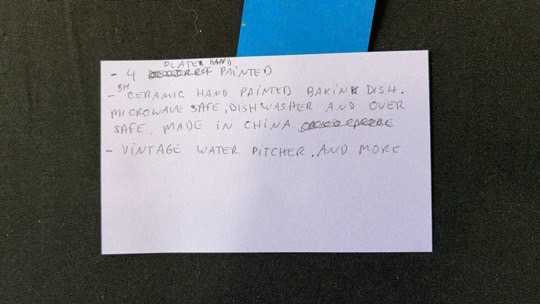 PLATER HAND
- 4 PAINTED
- SH CERAMIC HAND PAINTED BAKINK DISH.
MICROWAVE SAFE, DISHWASHER AND OVER
SAFE. MADE IN CHINA
- VINTAGE WATER PITCHER. AND MORE